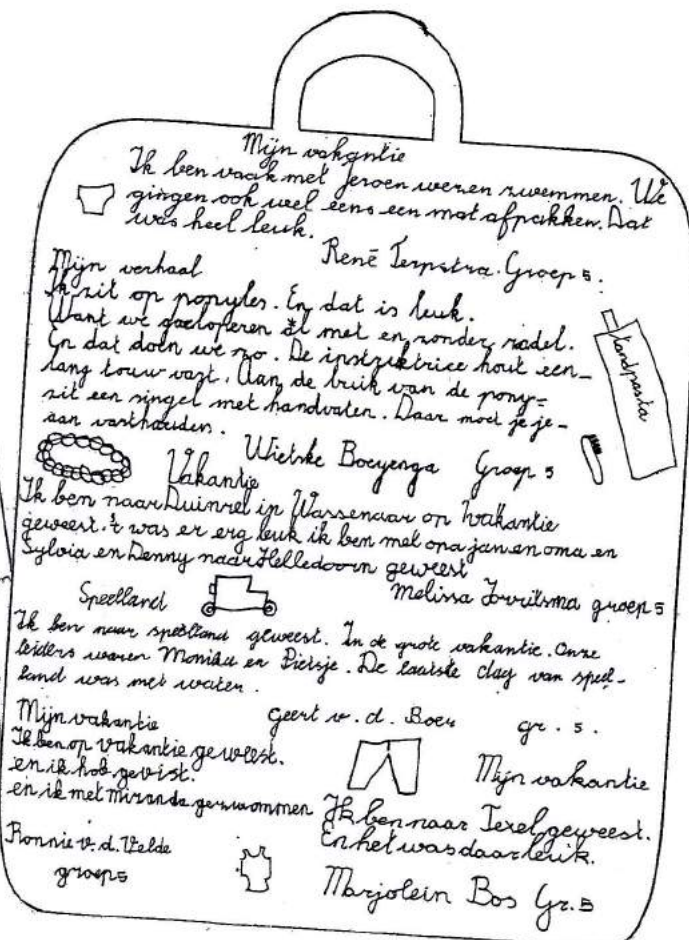 Mijn vakantie
Ik ben vaak met Jeroen wezen zwemmen. We
gingen ook wel eens een mat afpakken. Dat
was heel leuk.
René Terpstra. Groep 5.
Mijn verhaal
Ik zit op ponyles. En dat is leuk.
Want we galoperen al met en zonder zadel.
En dat doen we zo. De instruktrice hout een
lang touw vast. Aan de buik van de pony=
zit een singel met handvaten. Daar moet je je-
aan vasthouden.
tandpasta
Wietske Boeyenga Groep 5
Vakantie
Ik ben naar Duinrel in Wassenaar op vakantie
geweest. 't was er erg leuk ik ben met opa jan en oma en
Sylvia en Denny naar Helledoorn geweest
Melissa Jorritsma groep 5
Speelland
Ik ben naar speelland geweest. In de grote vakantie. Onze
leiders waren Monika en Pietsje. De laatste dag van speel-
land was met water.
Geert v. d. Boer gr. 5.
Mijn vakantie
Ik ben op vakantie geweest.
en ik hob gevist.
en ik met Miranda gezwommen
Ronnie v. d. Velde
groep 5
Mijn vakantie
Ik ben naar Texel geweest.
En het was daar leuk.
Marjolein Bos Gr. 5